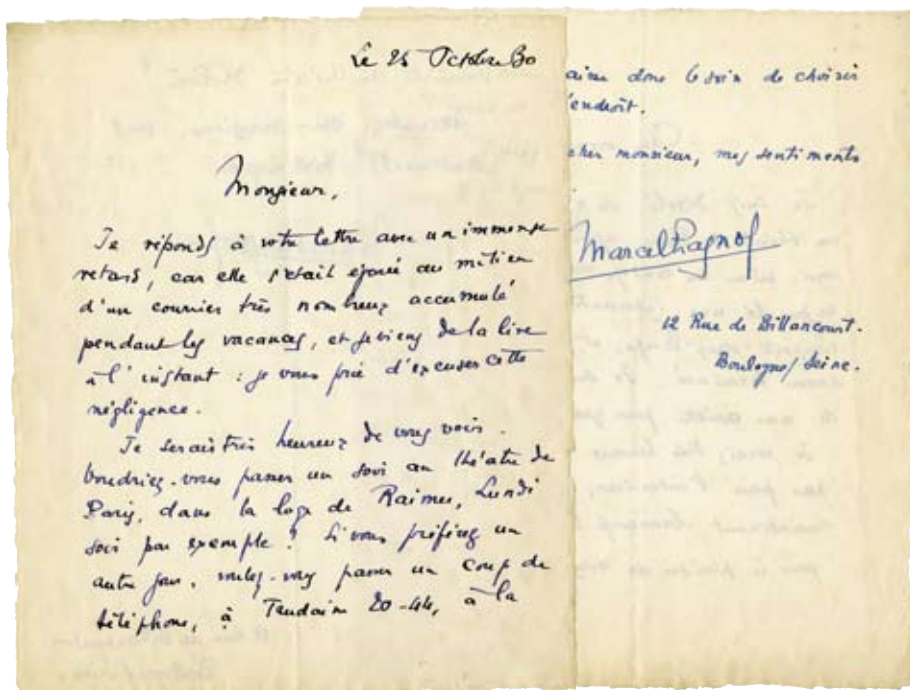 Le 25 Octobre 30
Monsieur,
Je réponds à votre lettre avec un immense
retard, car elle s'était égarée au milieu
d'un courrier très nombreux accumulé
pendant les vacances, et je viens de la lire
à l'instant : je vous prie d'excuser cette
négligence.
Je serais très heureux de vous voir.
Voudriez-vous passer un soir au théâtre de
Paris, dans la loge de Raimu, Lundi
soir par exemple ? Si vous préférez un
autre jour, voulez-vous passer un coup de
téléphone, à 20-44, à la
donc le soin de choisir
l'endroit.
cher monsieur, mes sentiments
Marcel Pagnol
12 Rue de Billancourt.
Boulogne/Seine.